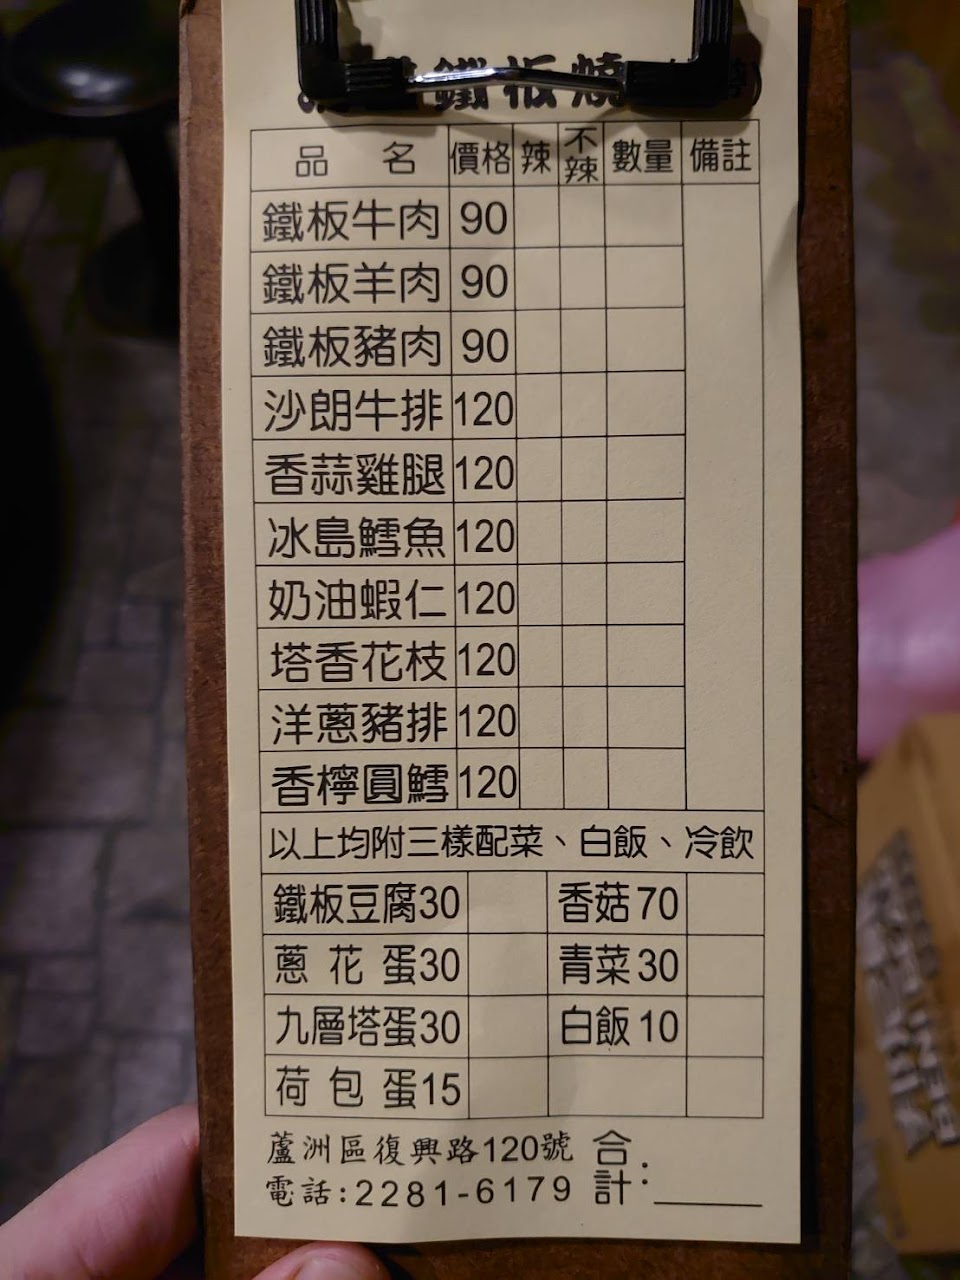 鐵板燒
品名 價格 辣 不辣 數量 備註
鐵板牛肉 90
鐵板羊肉 90
鐵板豬肉 90
沙朗牛排 120
香蒜雞腿 120
冰島鱈魚 120
奶油蝦仁 120
塔香花枝 120
洋蔥豬排 120
香檸圓鱈 120
以上均附三樣配菜、白飯、冷飲
鐵板豆腐30 香菇70
蔥花蛋30 青菜30
九層塔蛋30 白飯10
荷包蛋15
蘆洲區復興路120號
電話:2281-6179
合計:______